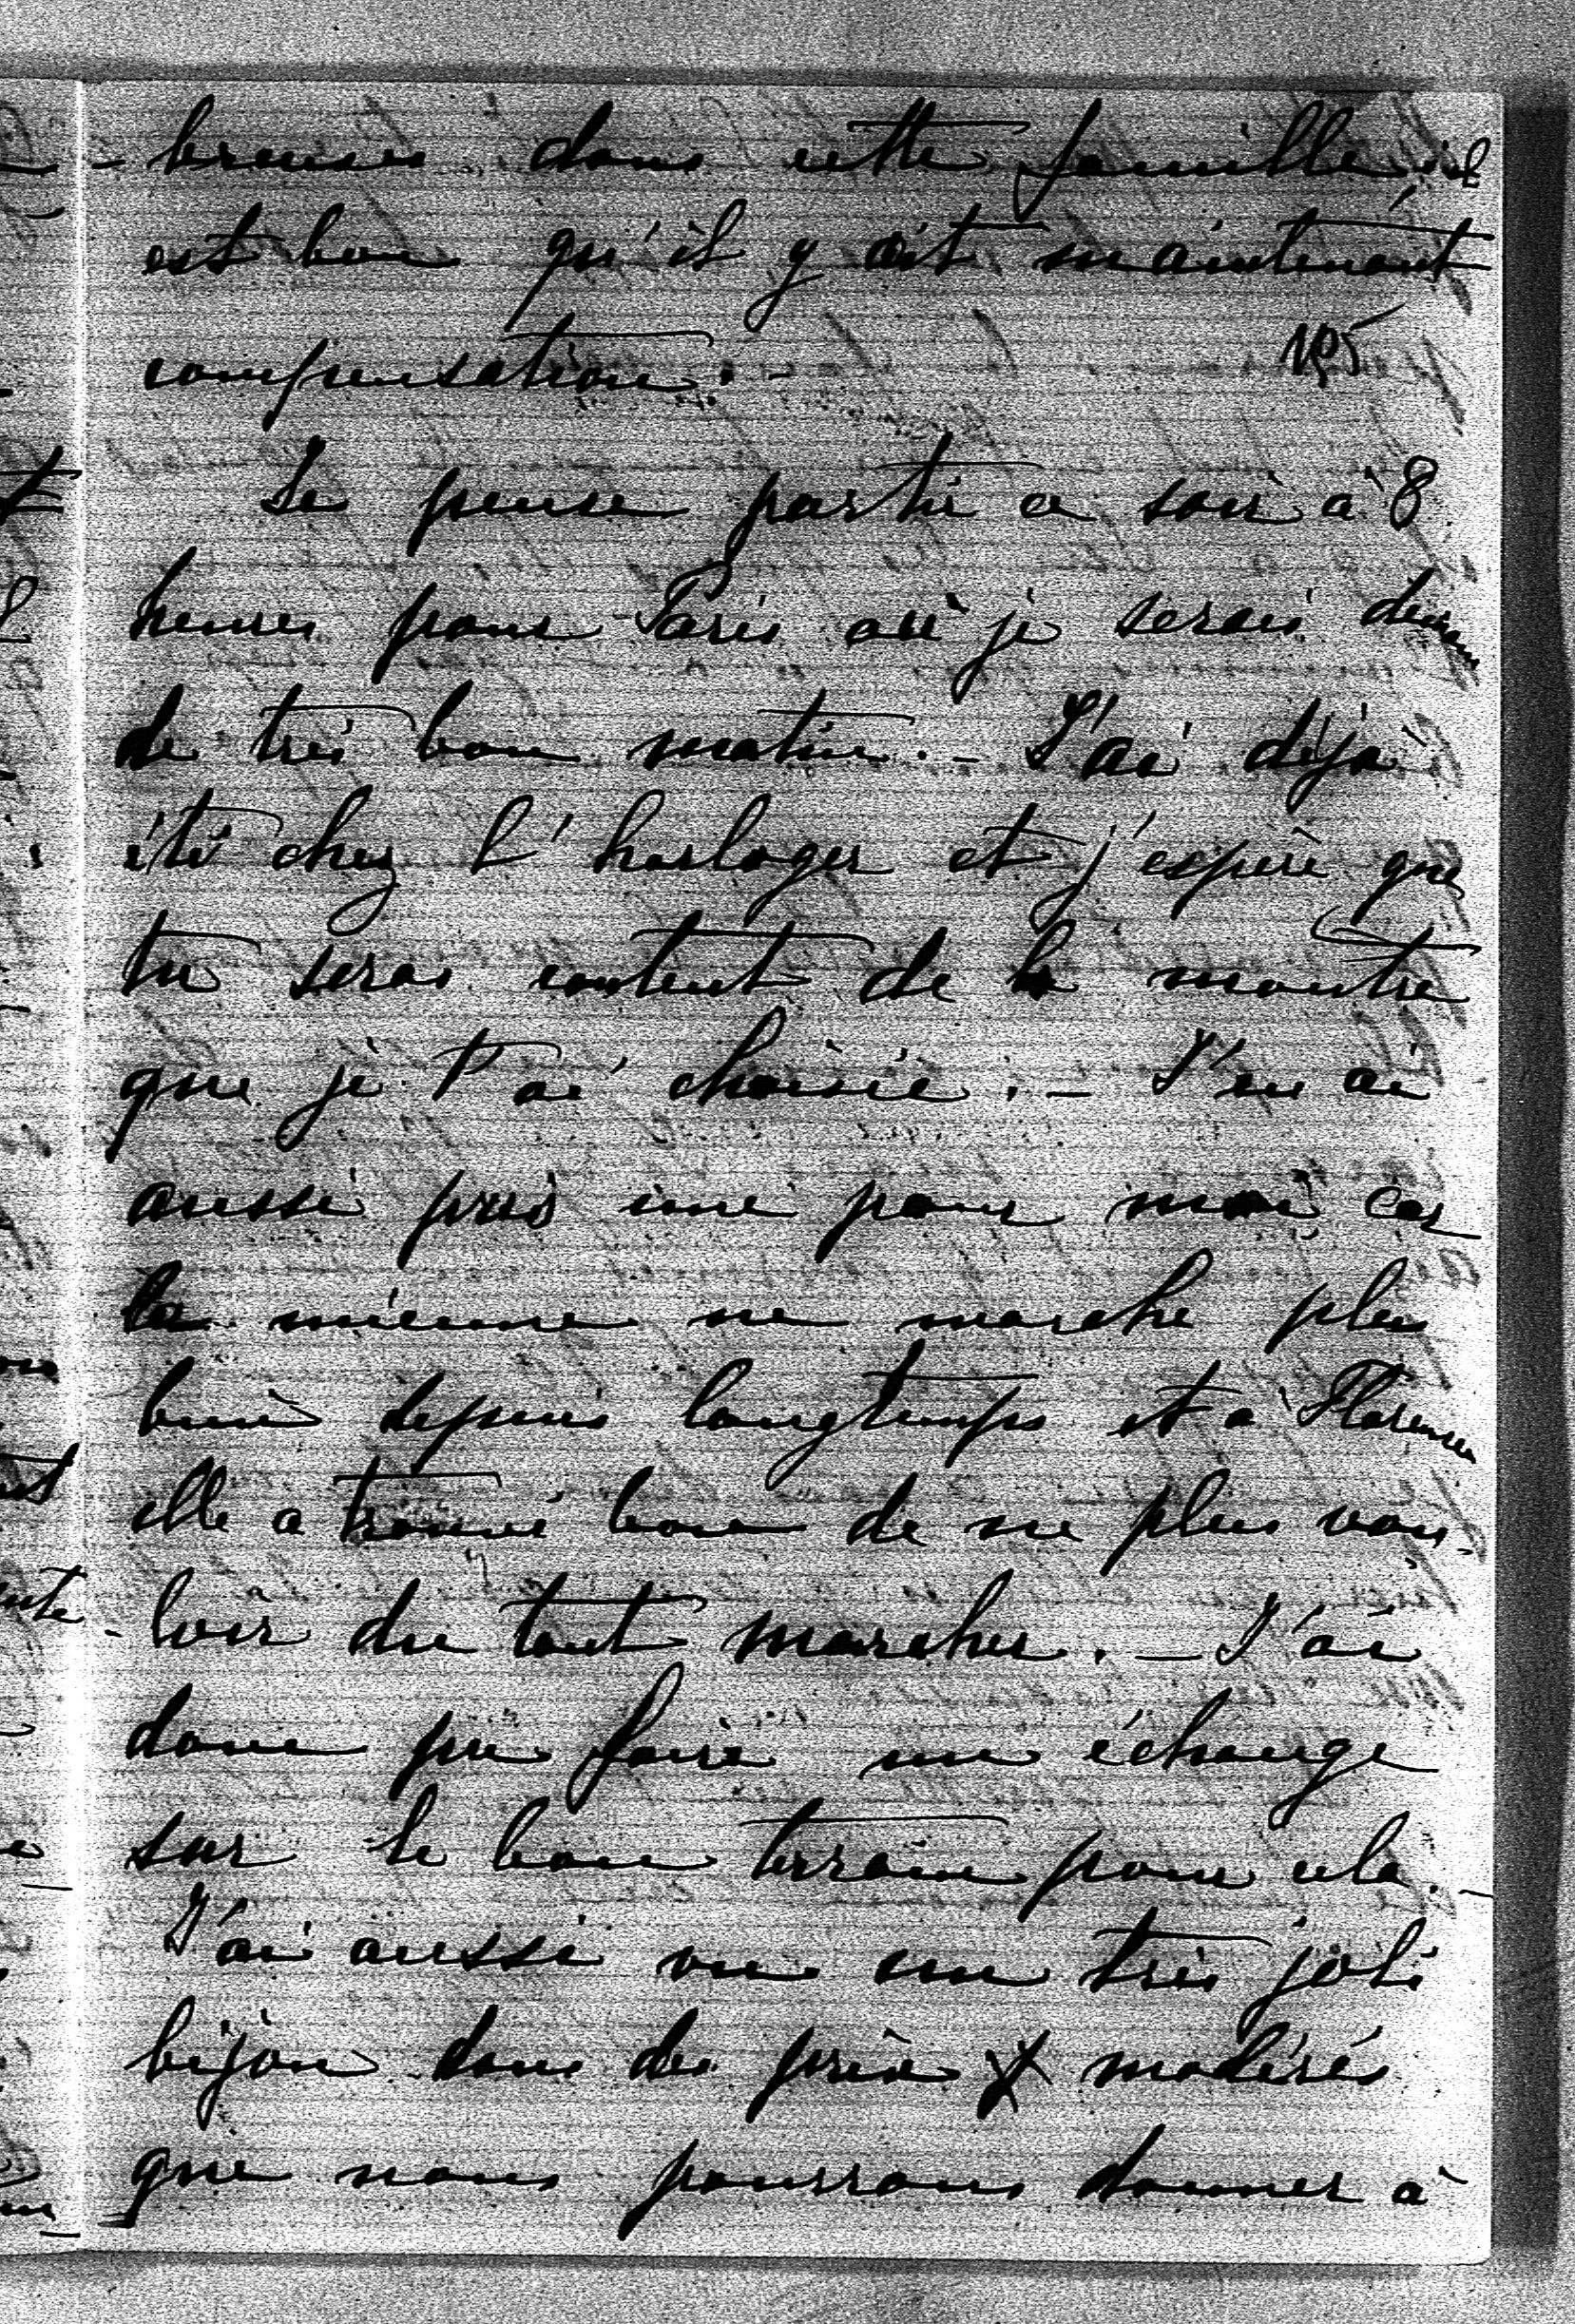 -breuses dans cette famille il
est bon qu'il y ait maintenant
compensation. -
105
Je pense partir ce soir à 8
heures pour Paris où je serai demain
de très bon matin. - J'ai déjà
été chez l'horloger et j'espère que
tu seras content de la montre
que je t'ai choisie. - J'en ai
aussi pris une pour moi car
la mienne ne marche plus
bien depuis longtemps et à Florence
elle a trouvé bon de ne plus vou-
-loir du tout marcher. - J'ai
donc pu faire un échange
sur le bon terrain pour cela. -
J'ai aussi vu un très joli
bijou dans des prix modérés
que nous pourrons donner à